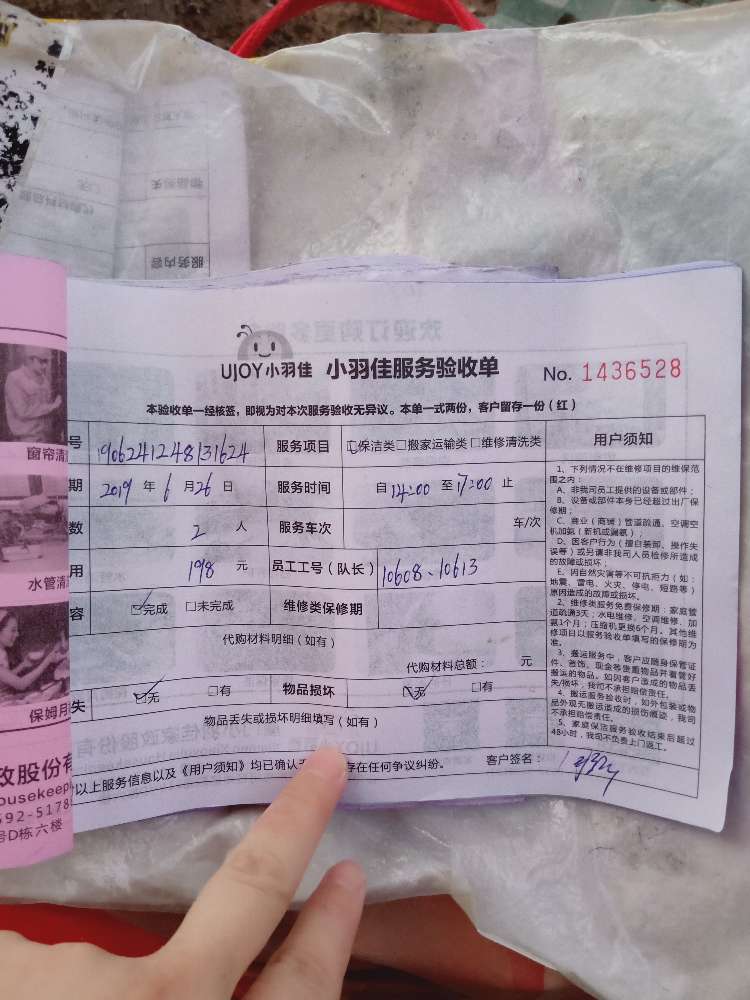 服务内容
UJOY小羽佳 小羽佳服务验收单 No. 1436528
本验收单一经核签，即视为对本次服务验收无异议。本单一式两份，客户留存一份（红）
号 190624124813162​4 服务项目 ☑保洁类□搬家运输类□维修清洗类
期 2019 年 6 月 26 日 服务时间 自 14:00 至 17:00 止
数 2 人 服务车次 车/次
用 198 元 员工工号（队长） 10608、10613
容 ☑完成 □未完成 维修类保修期
代购材料明细（如有）
代购材料总额： 元
失 ☑无 □有 物品损坏 ☑无 □有
物品丢失或损坏明细填写（如有）
以上服务信息以及《用户须知》均已确认 存在任何争议纠纷。 客户签名：
用户须知
1、下列情况不在维修项目的维保范
围之内：
A、非我司员工提供的设备或部件；
B、设备或部件本身已经超过出厂保
修期；
C、商业（商铺）管道疏通、空调空
机加氨（新机或漏氨）；
D、因客户行为（擅自装卸、操作失
误等）或另请非我司人员检修所造成
的故障或损坏；
E、因自然灾害等不可抗拒力（如：
地震、雷电、火灾、停电、短路等）
原因造成的故障或损坏。
2、维修类服务免费保修期：家庭管
道疏通3天；水电维修、空调维修、加
氨1个月；压缩机更换6个月。其他维
修项目以服务验收单填写的保修期为
准。
3、搬运服务中，客户应随身保管证
件、首饰、现金等贵重物品并看管好
搬运的物品。如因客户造成的物品丢
失/损坏，我司不承担赔偿责任。
4、搬运服务验收时，如外包装或物
品外观无搬运造成的损伤痕迹，我司
不承担赔偿责任。
5、家庭保洁服务验收结束后超过
48小时，我司不负责上门返工。
窗帘清
水管清
保姆月
政股份有
ousekeep
592-5178
号D栋六楼